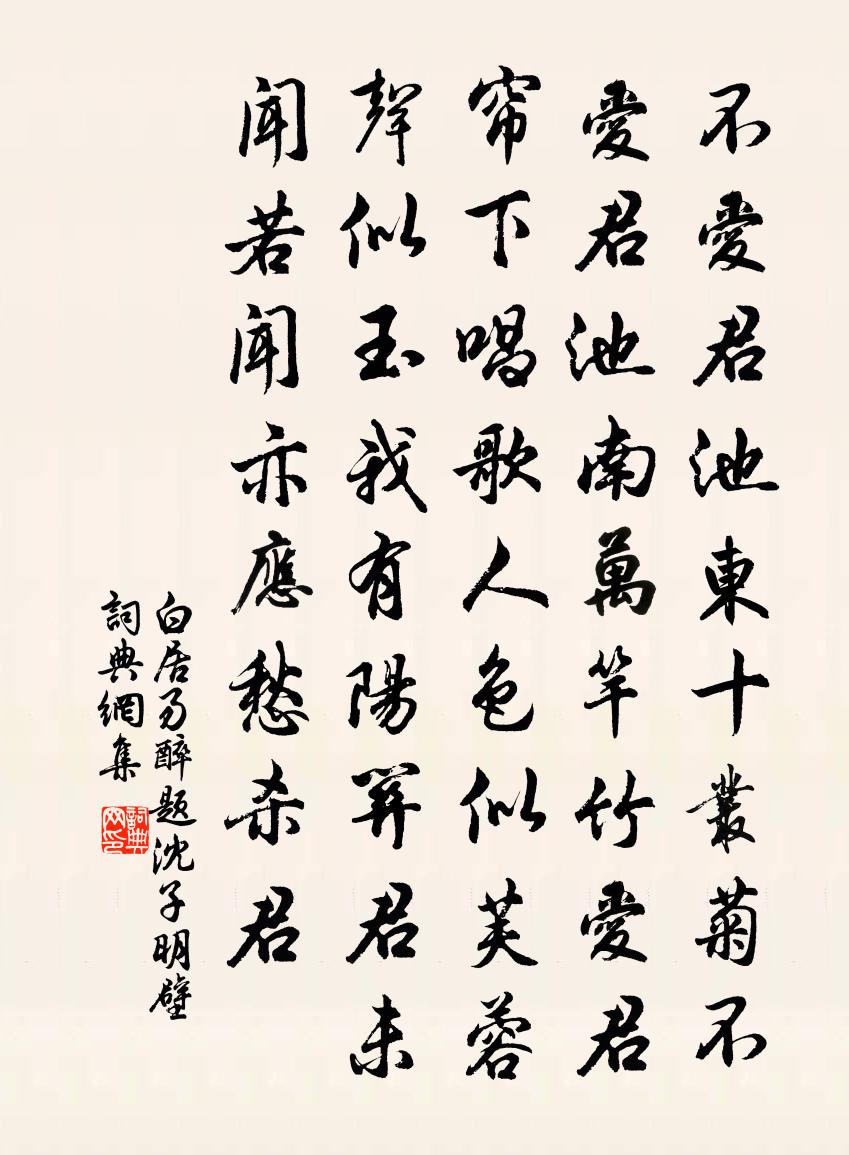 不愛君池東十叢菊不
愛君池南萬竿竹愛君
帘下唱歌人色似芙蓉
聲似玉我有陽關君未
聞若聞亦應愁杀君
白居易醉题沈子明壁
詞典網集
詞典
网印